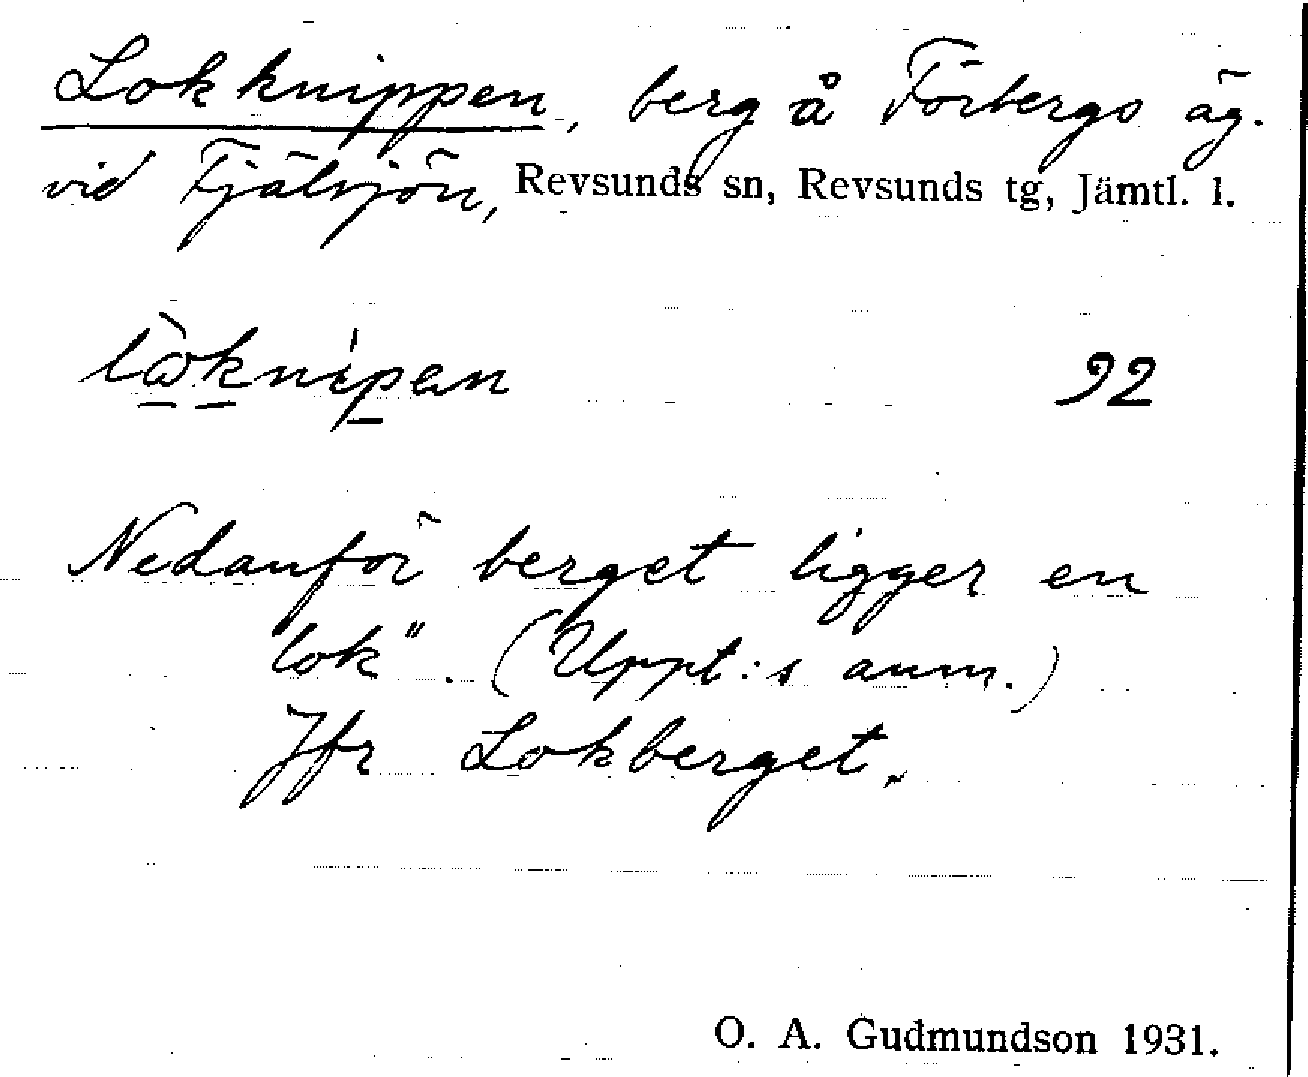 Lokknippen, berg å Förbergs äg.
vid Fjälsjön, Revsunds sn, Revsunds tg, Jämtl. l.
92
Nedanför berget ligger en
"lok". (Uppt:s anm.)
Jfr Lokberget.
O. A. Gudmundson 1931.